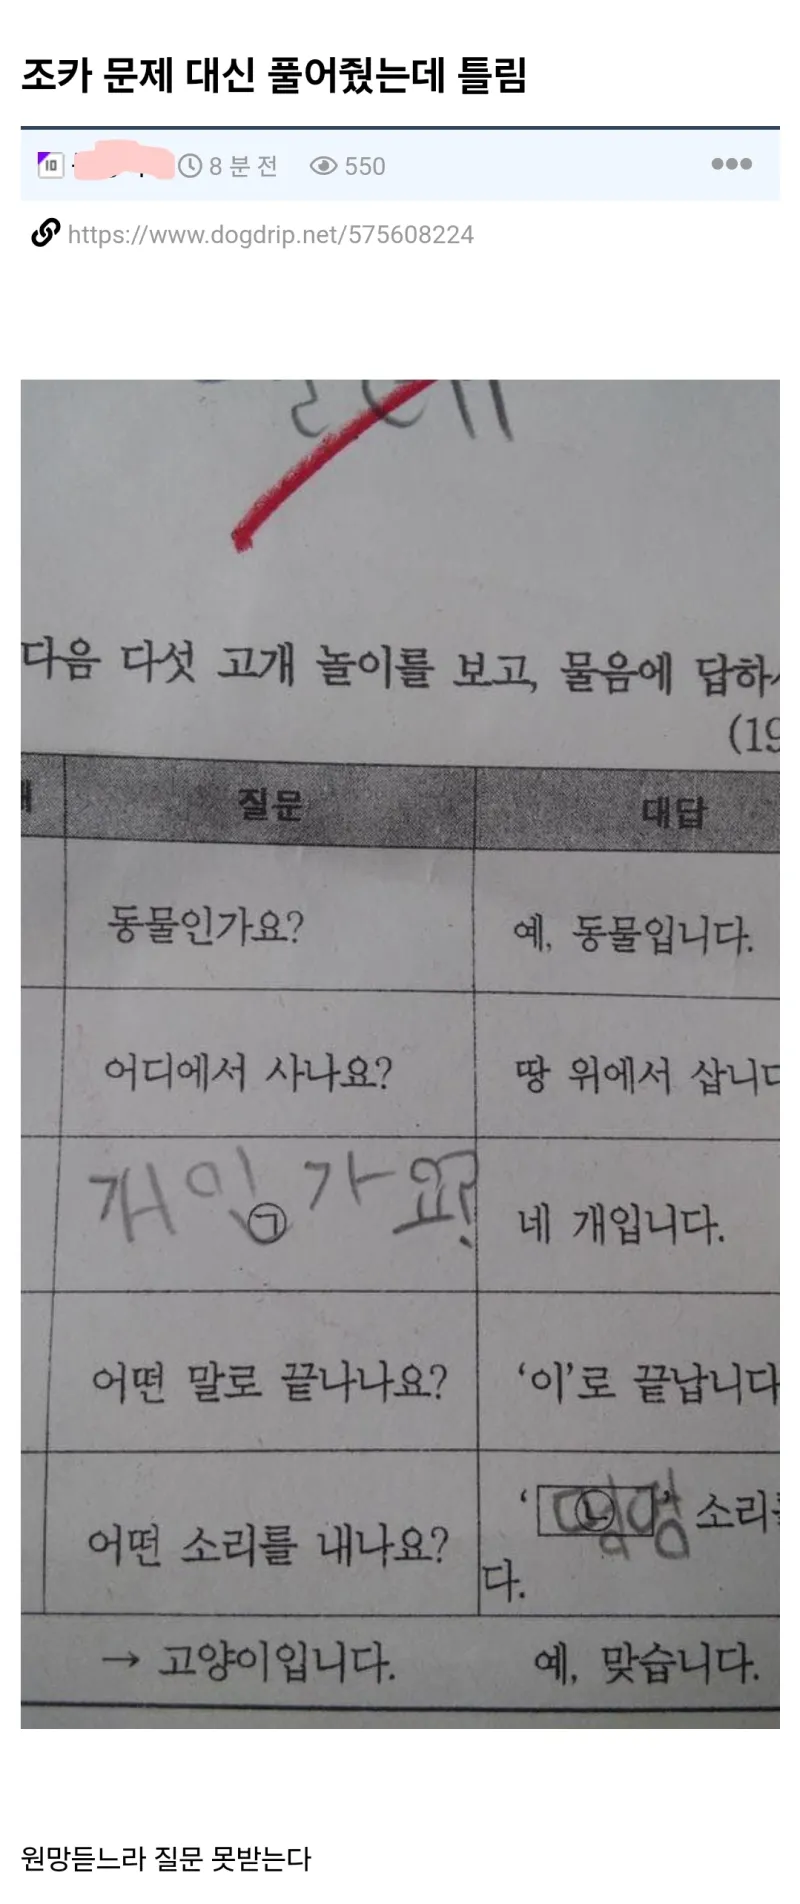 조카 문제 대신 풀어줬는데 틀림
10 8 분 전 550
https://www.dogdrip.net/575608224
다음 다섯 고개 놀이를 보고, 물음에 답하
(19
질문 대답
동물인가요? 예, 동물입니다.
어디에서 사나요? 땅 위에서 삽니다
개인가요? ㉠ 네 개입니다.
어떤 말로 끝나나요? ‘이’로 끝납니다
어떤 소리를 내나요? ‘㉡’ 소리를
다.
→ 고양이입니다. 예, 맞습니다.
원망듣느라 질문 못받는다